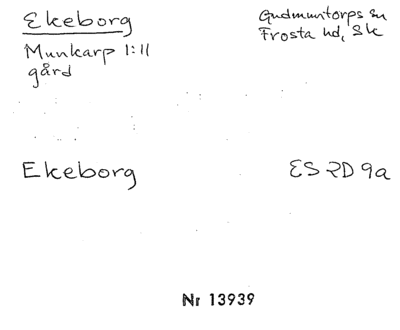 Ekeborg
Munkarp 1:11
gård
Gudmuntorps sn
Frosta hd, Sk
Ekeborg
ES 2D 9a
Nr 13939